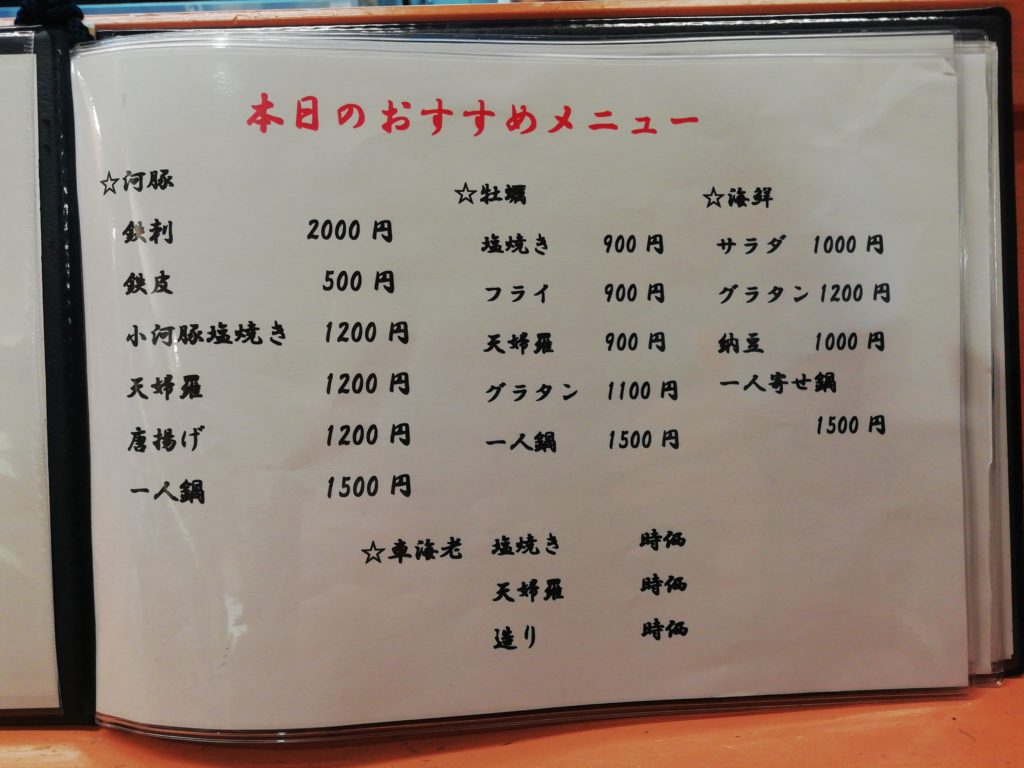 本日のおすすめメニュー
☆河豚
鉄刺 2000 円
鉄皮 500 円
小河豚塩焼き 1200 円
天婦羅 1200 円
唐揚げ 1200 円
一人鍋 1500 円
☆牡蠣
塩焼き 900 円
フライ 900 円
天婦羅 900 円
グラタン 1100 円
一人鍋 1500 円
☆海鮮
サラダ 1000 円
グラタン 1200 円
納豆 1000 円
一人寄せ鍋
1500 円
☆車海老 塩焼き 時価
天婦羅 時価
造り 時価